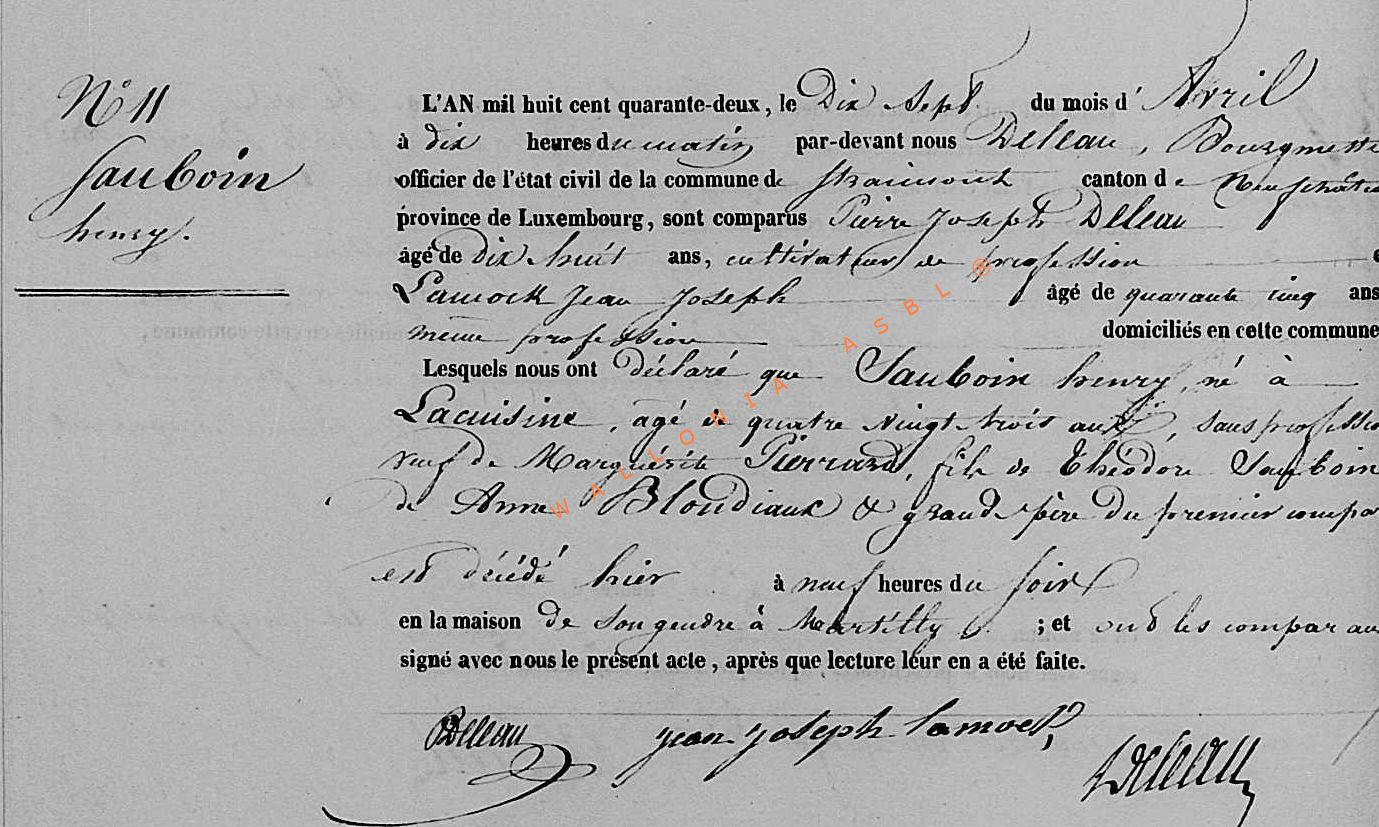 N° 11
Sauboin
henry.
L'AN mil huit cent quarante-deux, le Dix Sept du mois d' Avril
à dix heures du matin par-devant nous Deleau, Bourgmestre
officier de l'état civil de la commune de Straimont canton de Neufchâteau
province de Luxembourg, sont comparus Pierre Joseph Deleau
âgé de dix huit ans, cultivateur de profession e
Lamock Jean Joseph âgé de quarante cinq ans
même profession domiciliés en cette commune
Lesquels nous ont déclaré que Sauboin henry, né à
Lacuisine, agé de quatre vingt trois ans, sans professio
veuf de Marguérite Pierrard, fils de Théodore Sauboin
de Anne Blondiaux & grand père du premier compa
est décédé hier à neuf heures du soir
en la maison de son gendre à Martilly ; et ont les comparan
signé avec nous le présent acte, après que lecture leur en a été faite.
Deleau jean joseph lamock
Deleau
WALLONIA ASBL ®